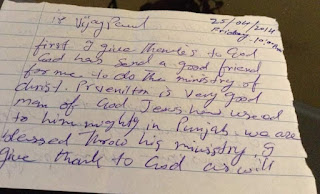 is Vijay Paul
25/04/2014
Friday - 10:
first I give thanks to God
God has send a good friend
for me to do the ministry of
christ. Praveniton is very good
man of God Jesus how used
to him mightly in Punjab we are
blessed Throw his ministry I
give thank to God as will